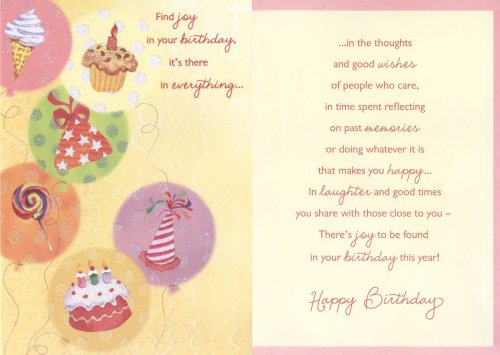 Find joy
in your birthday,
it's there
in everything...
...in the thoughts
and good wishes
of people who care,
in time spent reflecting
on past memories
or doing whatever it is
that makes you happy...
In laughter and good times
you share with those close to you –
There's joy to be found
in your birthday this year!
Happy Birthday